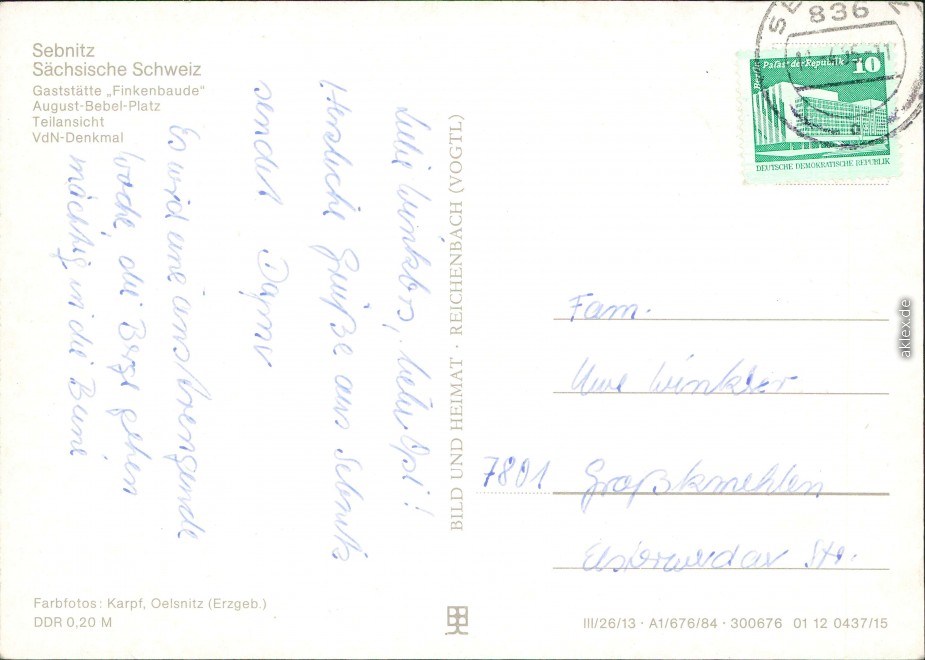 Sebnitz
Sächsische Schweiz
Gaststätte „Finkenbaude“
August-Bebel-Platz
Teilansicht
VdN-Denkmal
Liebe Winklers, lieber Opi!
Herzliche Grüße aus Sebnitz
sendet
Es wird eine anstrengende
Woche, die Berge gehen
mächtig in die Beine
Farbfotos: Karpf, Oelsnitz (Erzgeb.)
DDR 0,20 M
BILD UND HEIMAT · REICHENBACH (VOGTL)
836
Berlin Palast der Republik 10
DEUTSCHE DEMOKRATISCHE REPUBLIK
Fam.
Uwe Winkler
7801 Großkmehlen
Elsterwerdaer Str.
III/26/13 · A1/676/84 · 300676 01 12 0437/15
aklex.de